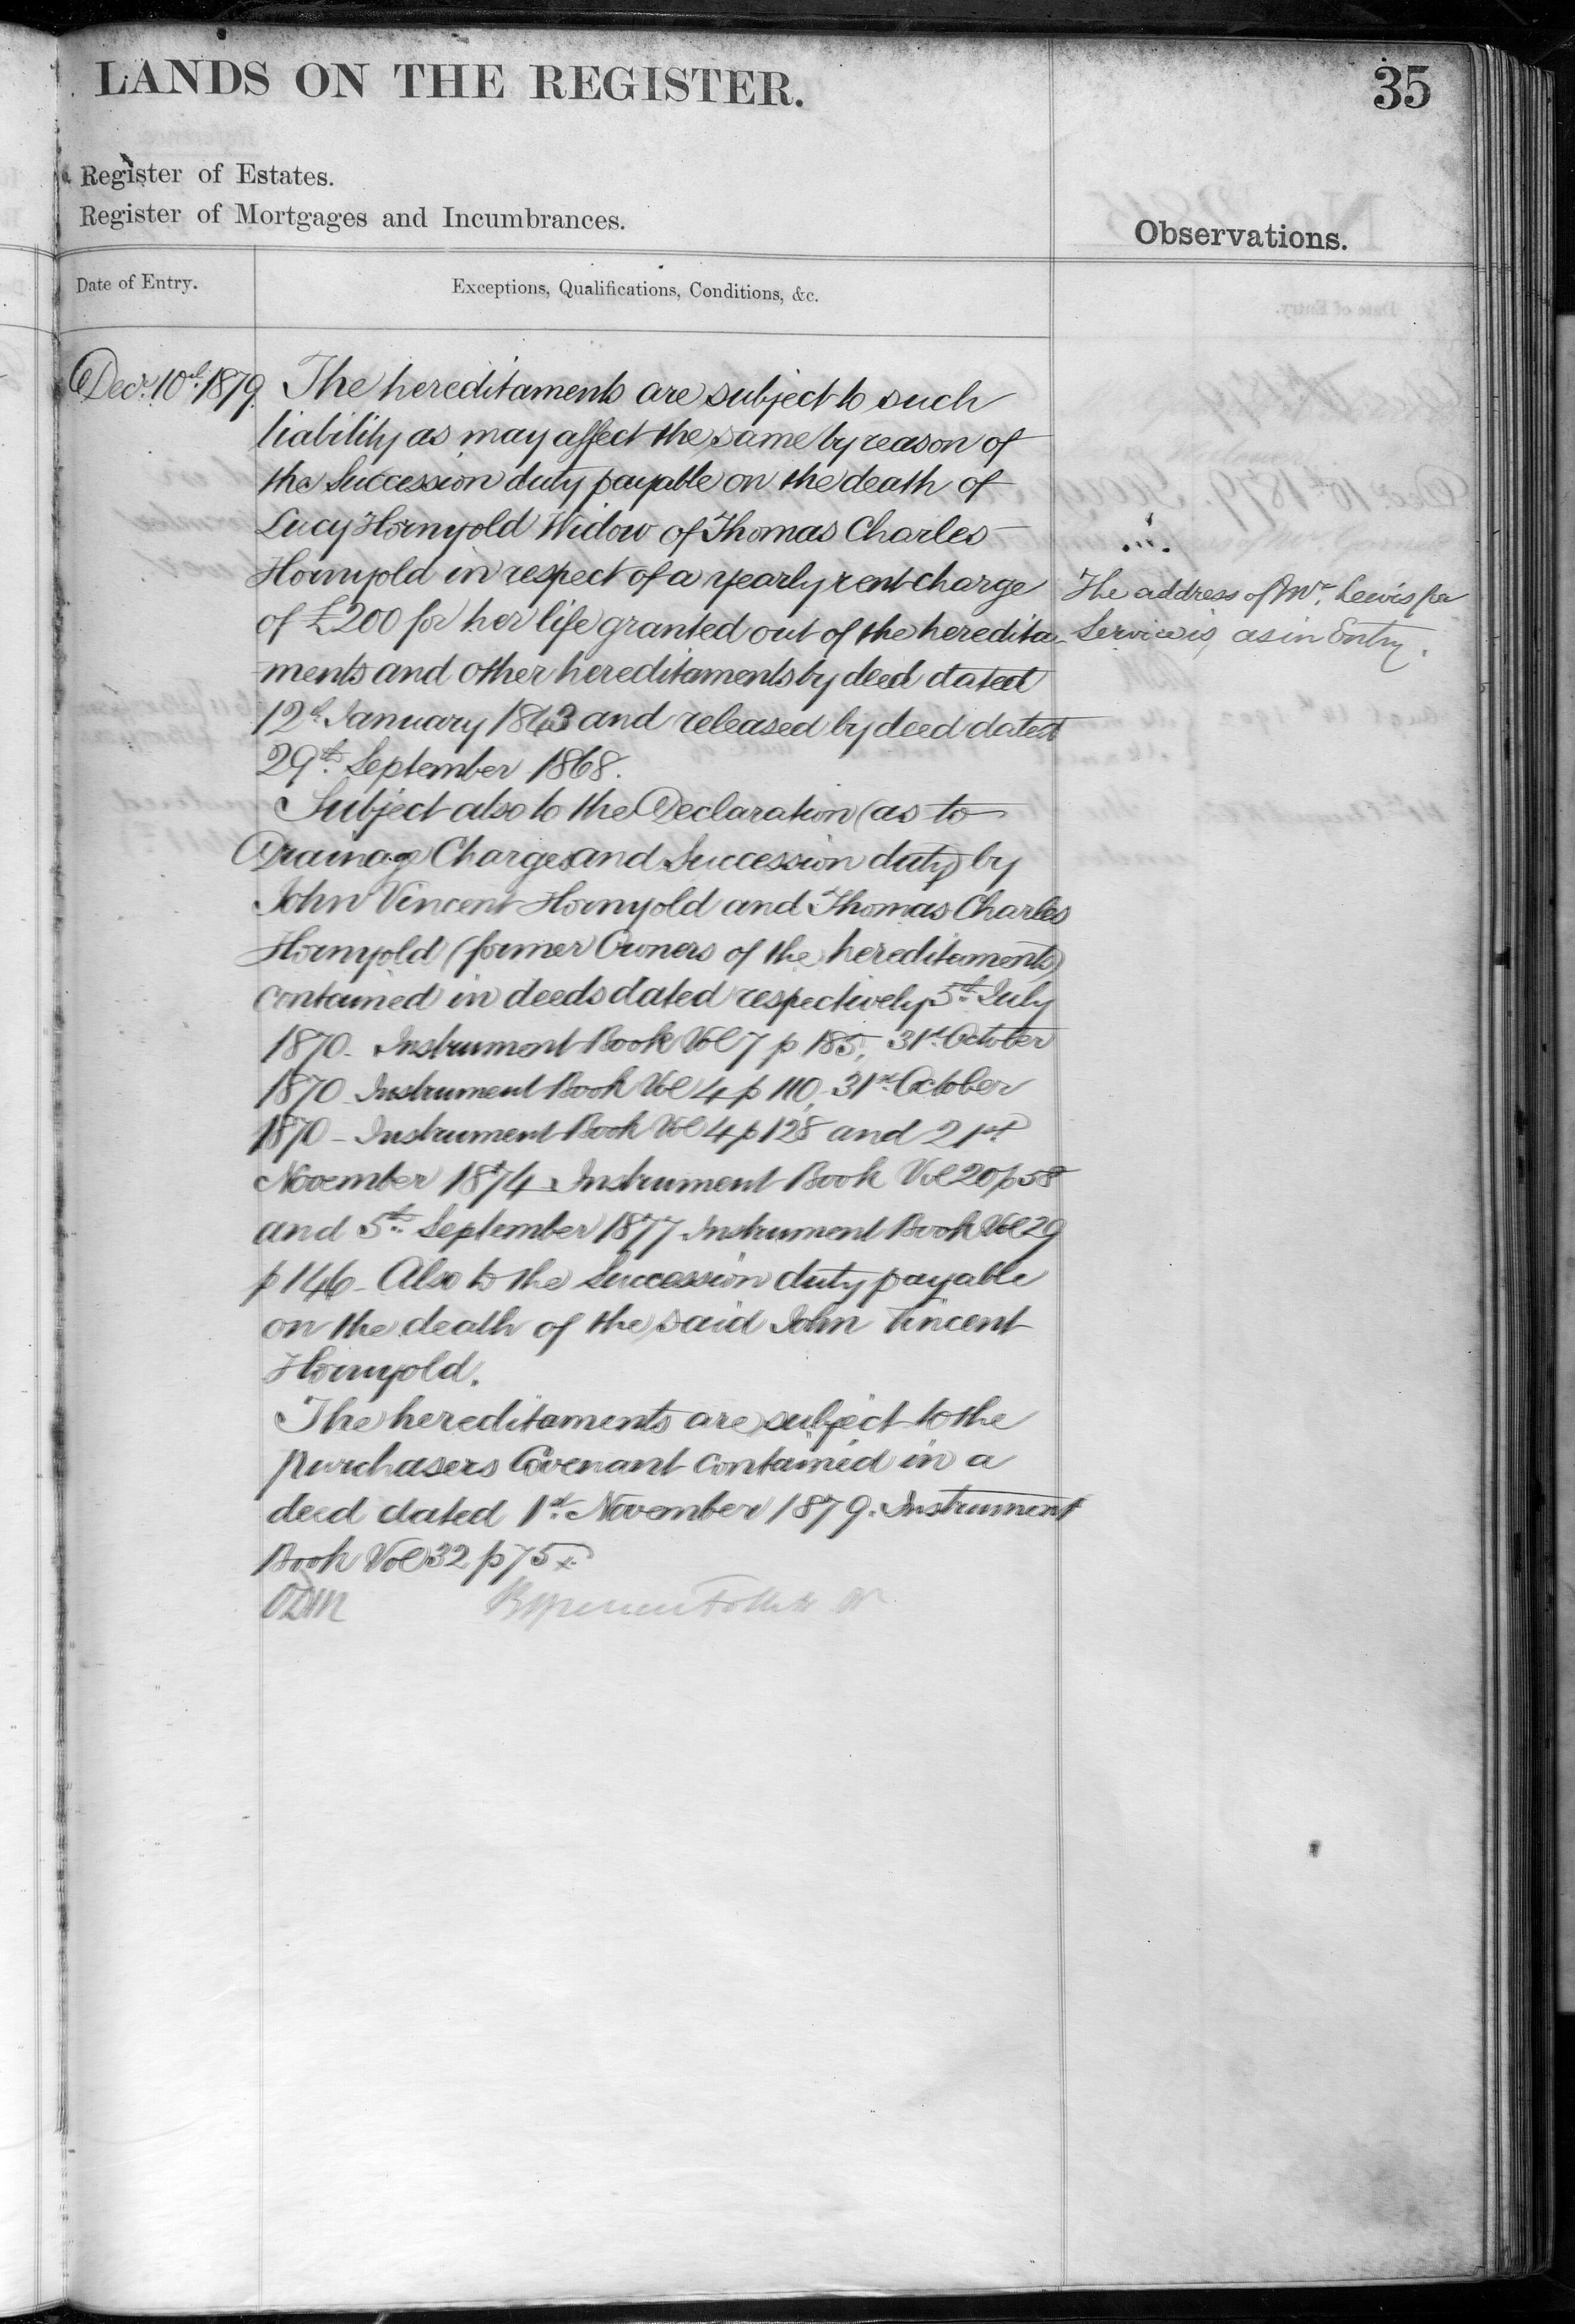 LANDS ON THE REGISTER.
35
Register of Estates.
Register of Mortgages and Incumbrances.
Observations.
Date of Entry.
Exceptions, Qualifications, Conditions, &c.
Decr. 10th 1879.
The hereditaments are subject to such
liability as may affect the same by reason of
the Succession duty payable on the death of
Lucy Hornyold Widow of Thomas Charles
Hornyold in respect of a yearly rent charge
of £200 for her life granted out of the heredita-
ments and other hereditaments by deed dated
12th January 1843 and released by deed dated
29th September 1868.
Subject also to the Declaration (as to
Drainage Charges and Succession duty) by
John Vincent Hornyold and Thomas Charles
Hornyold (former Owners of the hereditaments)
contained in deeds dated respectively 5th July
1870. Instrument Book Vol 7 p 185, 31st October
1870 Instrument Book Vol 4 p 110, 31st October
1870 - Instrument Book Vol 4 p 128 and 21st
November 1874 Instrument Book Vol 20 p 58
and 5th September 1877 Instrument Book Vol 29
p 146 - Also to the Succession duty payable
on the death of the said John Vincent
Hornyold.
The hereditaments are subject to the
purchasers Covenant contained in a
deed dated 1st November 1879. Instrument
Book Vol 32 p 75
The address of Mr. Lewis for
Service is as in Entry.